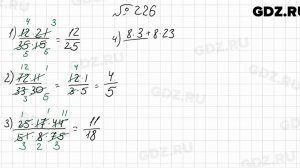 № 226
GDZ.RU
1) 12·21 / 35·15 = 12/25
4) 8·3+8·23
2) 72·11 / 33·30 = 4·1 / 3·5 = 4/5
3) 25·17·44 / 51·8·75 = 11/18
GDZ.RU